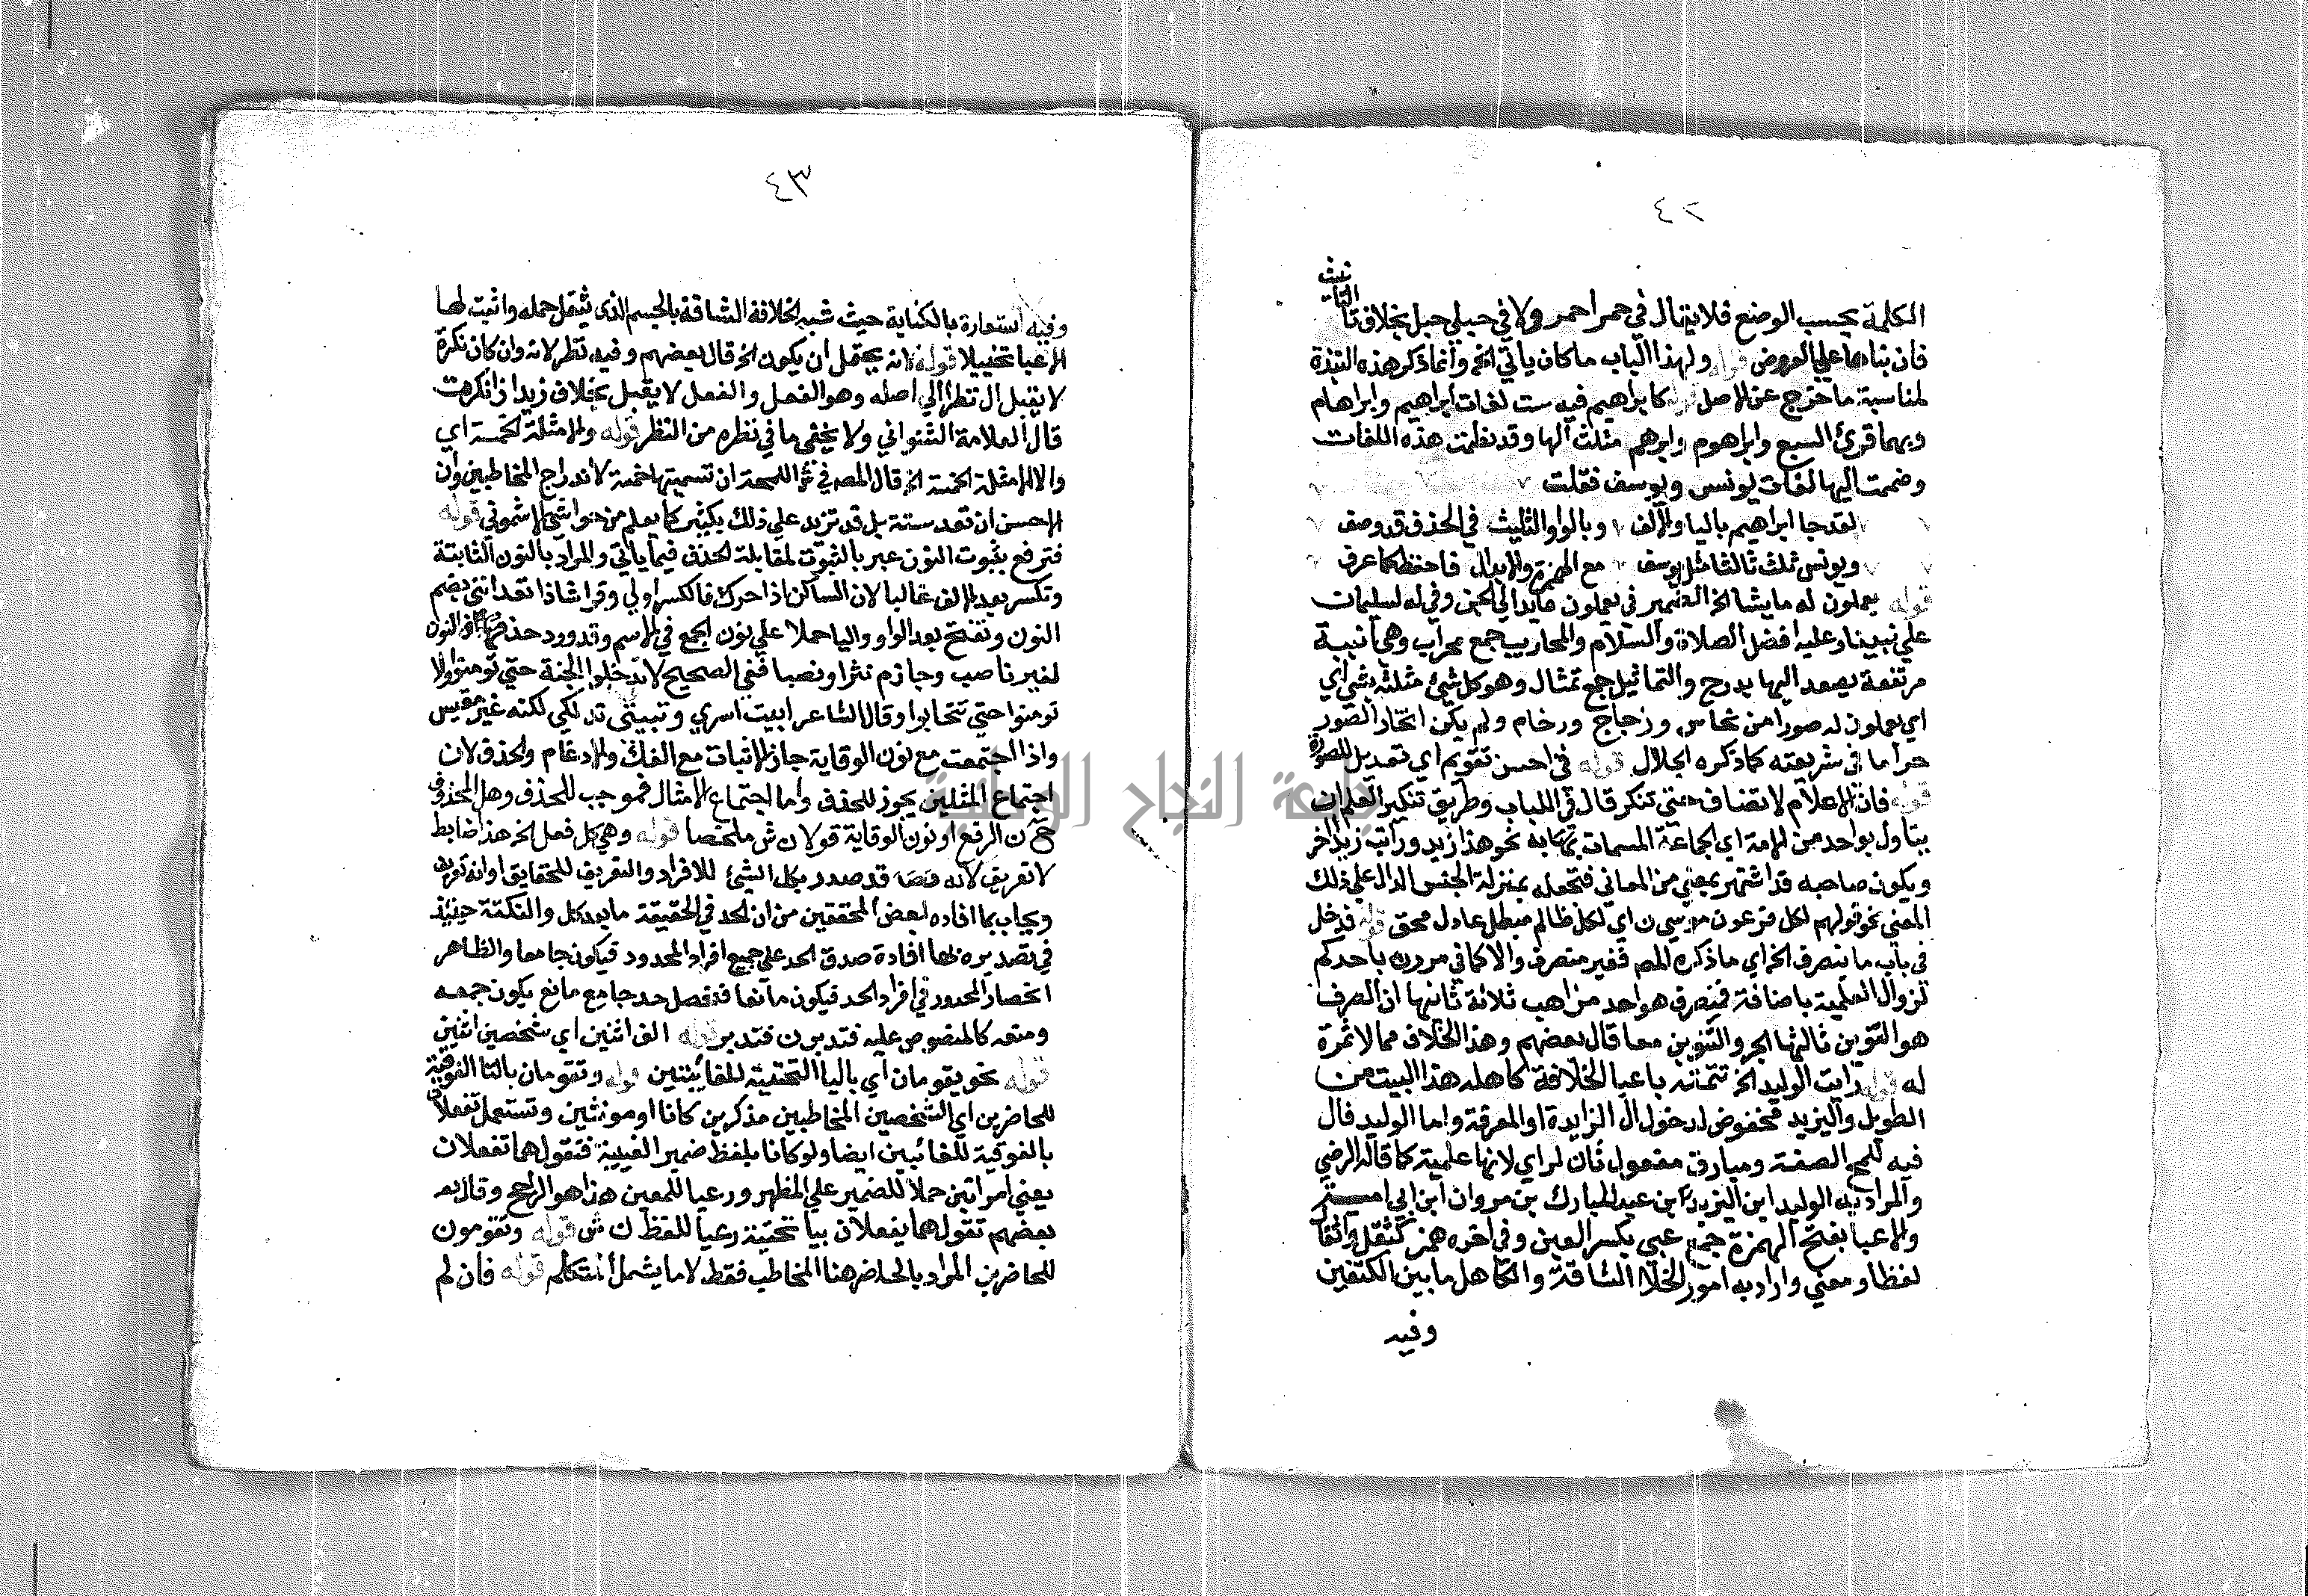 ٤٢
الكلمة بحسب الوضع فلا يقال في حمرا حمر ولا في حبلي حبل بخلاف تا التانيث
فان بناها علي العروض قوله ولهذا الباب ما كان ياتي الخ وانما ذكر هذه النبذة
لمناسبة ما خرج عن الاصل قوله كابراهيم فيه ست لغات ابراهيم وابراهام
وبهما قرئ السبع وابراهوم وابرهم مثلث الها وقد نظمت هذه اللغات
وضممت اليها لغات يونس ويوسف فقلت
لقد جا ابراهيم باليا والالف وبالواو التثليث في الحذف قد وصف
ويونس ثلث ثالثا مثل يوسف مع الهمز والابدال فاحفظ كما عرف
قوله يعملون له ما يشا الخ الضمير في يعملون عايد الي الجن وفي له لسليمان
علي نبينا وعليه افضل الصلاة والسلام والمحاريب جمع محراب وهي ابنية
مرتفعة يصعد اليها بدرج والتماثيل جمع تمثال وهو كل شئ مثلته بشي اي
اي يعملون له صورا من نحاس وزجاج ورخام ولم يكن اتخاذ الصور
حراما في شريعته كما ذكره الجلال قوله في احسن تقويم اي تعديل للصورة
قوله فان الاعلام لا تضاف حتي تنكر قال في اللباب وطريق تنكير العلم ان
يتاول بواحد من الامة اي الجماعة المسمات به نحو هذا زيد ورايت زيدا اخر
ويكون صاحبه قد اشتهر بمعني من المعاني فتجعله بمنزلة الجنس الدال علي ذلك
المعني نحو قولهم لكل فرعون موسي ن اي لكل ظالم مبطل عادل محق قوله فدخل
في باب ما ينصرف الخ اي ما ذكره المص فغير منصرف والا كما في مررت باحدكم
لزوال العلمية باضافة فينصرف هو احد مذاهب ثلاثة ثانيها ان الصرف
هو التنوين ثالثها الجر والتنوين معا قال بعضهم وهذا الخلاف مما لا ثمرة
له قوله رايت الوليد الخ تتمته باعبا الخلافة كاهله هذا البيت من
الطويل واليزيد مخفوض لدخول ال الزايدة او المعرفة واما الوليد فال
فيه للمح الصفة ومبارك مفعول ثان لراي لانها علمية كما قاله الرضي
والمراد به الوليد ابن اليزيد ابن عبد المبارك بن مروان ابن ابي
والاعبا بفتح الهمزة جمع عبي بكسر العين وفي اخره همز كثقل واثقال
لفظا ومعني واراد به امور الخلافة الشاقة والكاهل ما بين الكتفين
وفيه
٤٣
وفيه استعارة بالكناية حيث شبه الخلافة الشاقة بالجسم الذي يثقل حمله واثبت لها
الاعبا تخييلا قوله لانه يحتمل ان يكون الخ قال بعضهم وفيه نظر لانه وان كان نكرة
لا يقبل ال نظرا الي اصله وهو الفعل والفعل لا يقبل بخلاف زيد اذا نكرت
قال العلامة الشنواني ولا يخفي ما في نظره من النظر قوله والامثلة الخمسة اي
والا الامثلة الخمسة الخ قال المص في ش اللمحة ان تسميتها خمسة لاندراج المخاطبين وان
الاحسن ان تعد ستة بل قد تزيد علي ذلك بكثير كما يعلم من حواشي الاشموني قوله
فترفع بثبوت النون عبر بالثبوت لمقابلة الحذف فيما ياتي والمراد بالنون الثابتة
وتكسر بعد الالف غالبا لان الساكن اذا حرك فالكسر اولي وقرا شاذا تعدانني بضم
النون وتفتح بعد الواو واليا حملا علي نون الجمع في الاسم وقد ورد حذف النون
لغير ناصب وجازم نثرا ونصبا ففي الصحيح لا تدخلوا الجنة حتي تومنوا ولا
تومنوا حتي تتحابوا وقال الشاعر ابيت اسري وتبيتي تدلكي لكنه غير مقيس
واذا اجتمعت مع نون الوقاية جاز الاثبات مع الفك والادغام والحذف لان
اجتماع المثلين يجوز للحذف واما اجتماع الامثال فموجب للحذف وهل المحذوف
ح ن الرفع او نون الوقاية قولان ش ملخصا قوله وهي كل فعل الخ هذا ضابط
لا تعريف لانه قد صدر بكل الشئ للافراد والتعريف للحقايق او انه تعريف
ويجاب بما افاده بعض المحققين من ان الحد في الحقيقة ما بعد كل والنكتة حينئذ
في تصديره بها افادة صدق الحد علي جميع افراد المحدود فيكون جامعا والظاهر
انحصار المحدود في افراد الحد فيكون مانعا فتحصل حد جامع مانع يكون جمعه
ومنعه كالمنصوص عليه فتدبر ن فتدبر قوله الف اثنين اي شخصين اثنين
قوله نحو يقومان اي باليا التحتية للغايبين قوله وتقومان بالتا الفوقية
للحاضرين اي الشخصين المخاطبين مذكرين كانا او مونثين وتستعمل تفعلان
بالفوقية للغائبين ايضا ولو كانا بلفظ ضمير الغيبة فتقول هما تفعلان
يعني امراتين حملا للضمير علي المظهر ورعيا للمعين هذا هو الراجح وقال بعـ
بعضهم تقول هما يفعلان بيا تحتية رعيا للفظ ن ش قوله وتقومون
للحاضرين المراد بالحاضر هنا المخاطب فقط لا ما يشمل المتكلم قوله فان لم
جامعة النجاح الوطنية